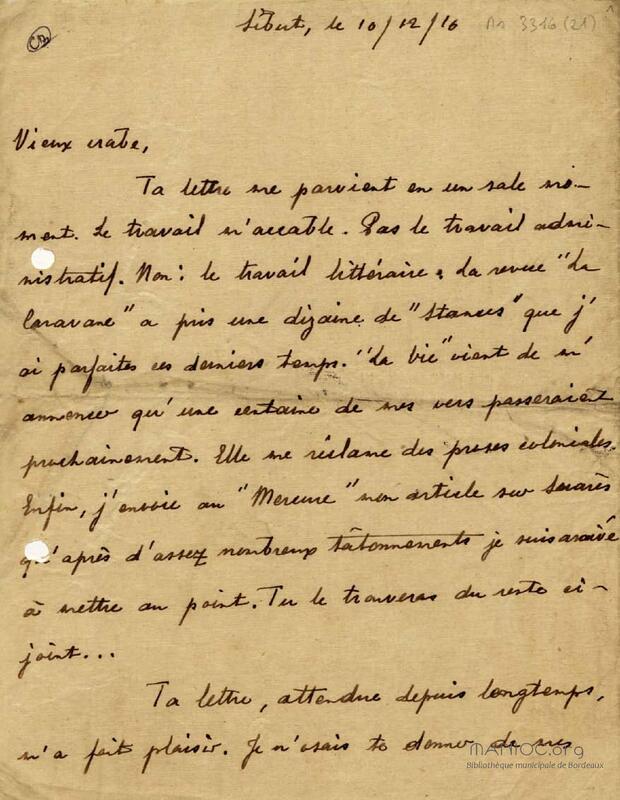 Sibut, le 10/12/16
Ms 3316 (21)
CD
Vieux crabe,
Ta lettre me parvient en un sale mo-
ment. Le travail m'accable. Pas le travail admi-
nistratif. Non : le travail littéraire. La revue "La
Caravane" a pris une dizaine de "Stances" que j'
ai parfaites ces derniers temps. "La Vie" vient de m'
annoncer qu'une centaine de mes vers passeraient
prochainement. Elle me réclame des proses coloniales.
Enfin, j'envoie au "Mercure" mon article sur
qu'après d'assez nombreux tâtonnements je suis arrivé
à mettre au point. Tu le trouveras du reste ci-
joint...
Ta lettre, attendue depuis longtemps,
m'a fait plaisir. Je n'osais te donner de mes
MANIOC.org
Bibliothèque municipale de Bordeaux